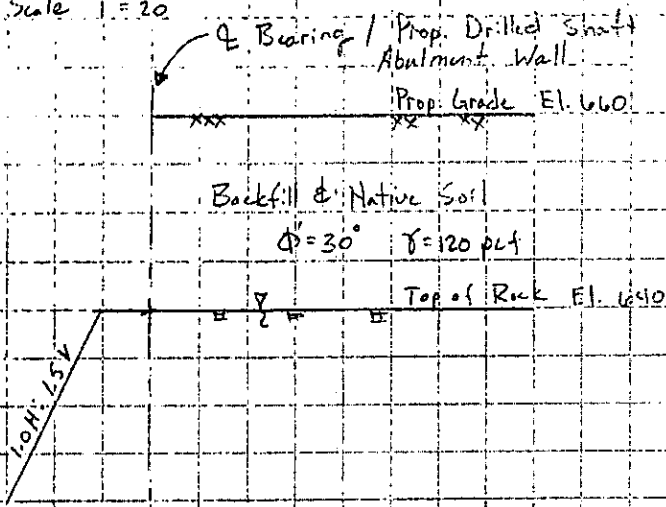 Scale 1" = 20'
℄ Bearing / Prop. Drilled Shaft
Abutment Wall
Prop. Grade El. 660
Backfill & Native Soil
Φ' = 30° γ = 120 pcf
Top of Rock El. 640
1.0H:1.5V